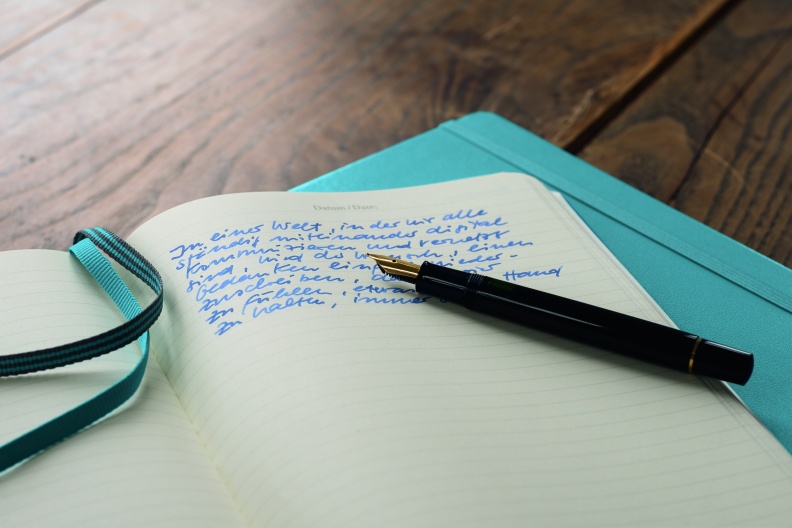 Datum / Date:
In einer Welt, in der wir alle
ständig miteinander digital
kommunizieren und vernetzt
sind, wird der Wunsch, einen
Gedanken nieder-
zuschreiben,
zu fühlen, etwas Hand
zu halten, immer